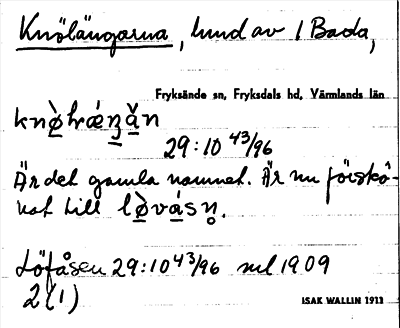 Knölängarna, lund av 1 Bada,
Fryksände sn, Fryksdals hd, Värmlands län
29:10 43/96
Är det gamla namnet. Är nu förskö-
nat till lò̱vá̱sn̥.
Löfåsen 29:10 43/96 ml 1909
2(1)
ISAK WALLIN 1911